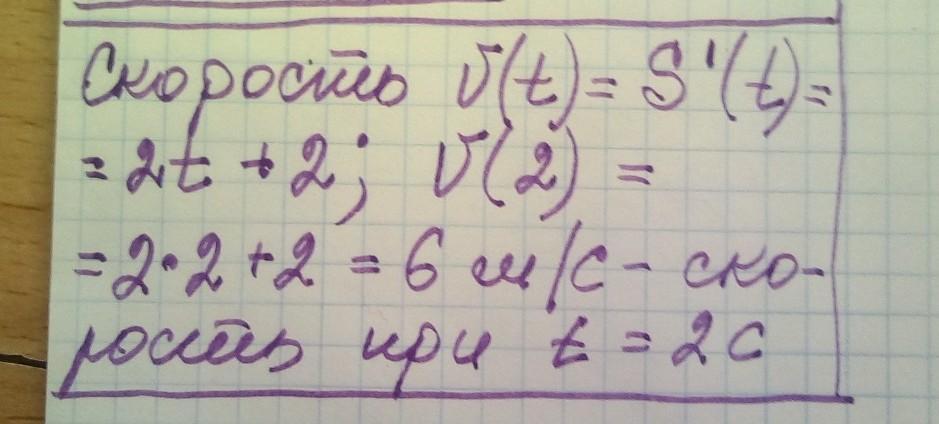 Скорость V(t) = S'(t) =
= 2t + 2; V(2) =
= 2·2 + 2 = 6 м/с - ско-
рость при t = 2с